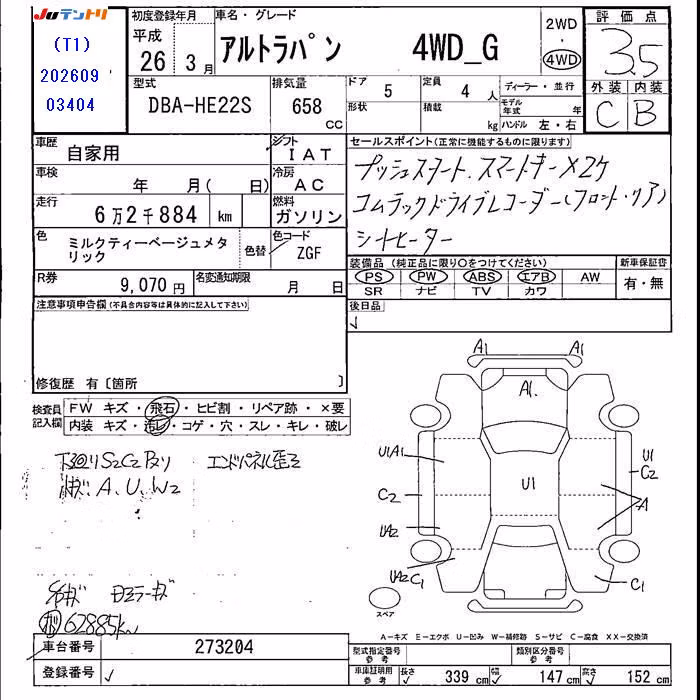 Juテントリ
(T1)
202609
03404
初度登録年月
平成
26 3月
車名・グレード
アルトラパン 4WD_G
2WD
・
4WD
評価点
3.5
外装 内装
C B
型式
DBA-HE22S
排気量
658
CC
ドア
5
形状
定員
4 人
積載
kg
ディーラー・並行
モデル年式 年
ハンドル 左・右
車歴
自家用
シフト
IAT
車検
年 月( 日)
冷房
AC
走行
6万2千884 km
燃料
ガソリン
色
ミルクティーベージュメタ
リック
色替
色コード
ZGF
R券
9,070円
名変通知期限
月 日
セールスポイント(正常に機能するものに限ります)
プッシュスタート.スマートキー×2ケ
コムテックドライブレコーダー(フロント・リア)
シートヒーター
装備品(純正品に限り○をつけてください)
PS PW ABS エアB AW
SR ナビ TV カワ
新車保証書
有・無
注意事項申告欄(不具合内容等は具体的に記入して下さい)
後日品
✓
修復歴 有〔箇所 〕
検査員
記入欄
FW キズ・飛石・ヒビ割・リペア跡・×要
内装 キズ・汚レ・コゲ・穴・スレ・キレ・破レ
下回りS2C2 エンドパネル歪ミ
A、U、W2
62885km
A1 A1
A1.
U1A1
U1
C2
U1
C2
A
UA2
UA2C1
C1
スペア
A－キズ E－エクボ U－凹み W－補修跡 S－サビ C－腐食 XX－交換済
車台番号
273204
登録番号
✓
型式指定番号
参考
類別区分番号
参考
車庫証明用
参考
長さ
✓ 339 cm
幅
✓ 147 cm
高さ
✓ 152 cm